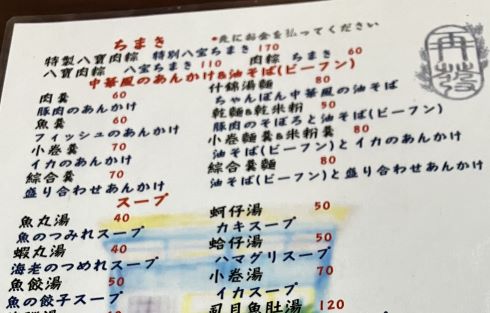 ちまき
*先にお金を払ってください
特製八寶肉粽 特別八宝ちまき 170
肉粽 ちまき 60
八寶肉粽 八宝ちまき 110
中華風のあんかけ&油そば(ビーフン)
肉羹 60
豚肉のあんかけ
魚羹 60
フィッシュのあんかけ
小卷羹 70
イカのあんかけ
綜合羹 70
盛り合わせあんかけ
什錦湯麵 80
ちゃんぽん中華風の油そば
乾麵&乾米粉 50
豚肉のそぼろと油そば(ビーフン)
小卷麵羹&米粉羹 80
油そば(ビーフン)とイカのあんかけ
綜合羹麵 80
油そば(ビーフン)と盛り合わせあんかけ
スープ
魚丸湯 40
魚のつみれスープ
蝦丸湯 40
海老のつめれスープ
魚餃湯 50
魚の餃子スープ
蚵仔湯 50
カキスープ
蛤仔湯 50
ハマグリスープ
小卷湯 70
イカスープ
虱目魚肚湯 120
再發